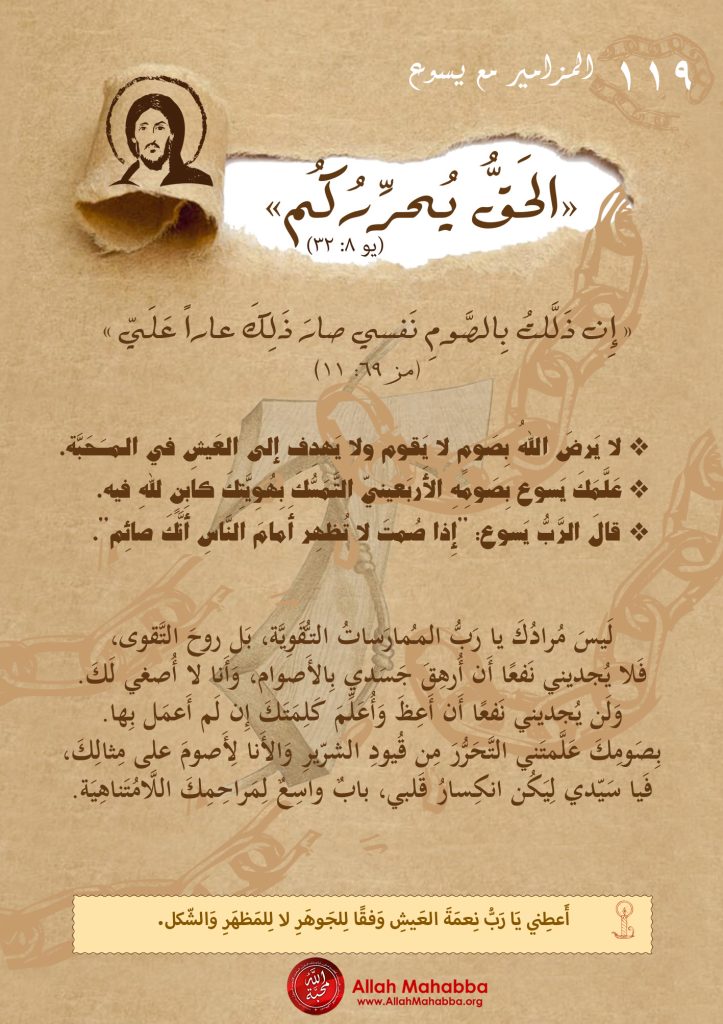 ١١٩ المزامير مع يسوع
«الحَقُّ يُحرِّرُكُم»
(يو ٨: ٣٢)
« إِن ذَلَّلتُ بِالصَّومِ نَفسي صارَ ذَلِكَ عاراً عَلَيّ »
(مز ٦٩: ١١)
❖ لا يَرضَ اللهُ بِصَومٍ لا يَقوم ولا يَهدف إلى العَيشِ في المَحَبَّة.
❖ عَلَّمَكَ يَسوع بِصَومِهِ الأربَعينيّ التَّمَسُّك بِهُوِيَّتِكَ كابنٍ للهِ فيه.
❖ قالَ الرَّبُّ يَسوع: "إِذا صُمتَ لا تُظهِر أَمامَ النَّاسِ أَنَّكَ صائِم".
لَيسَ مُرادُكَ يا رَبُّ المُمارَساتُ التُّقَوِيَّة، بَل روحَ التَّقوى،
فَلا يُجديني نَفعًا أَن أُرهِقَ جَسَدي بِالأَصوام، وَأَنا لا أُصغي لَكَ.
وَلَن يُجديني نَفعًا أَن أَعِظَ وَأُعَلِّمَ كَلِمَتَكَ إِن لَم أَعمَل بِها.
بِصَومِكَ عَلَّمتَني التَّحَرُّرَ مِن قُيودِ الشرّيرِ وَالأَنا لِأَصومَ على مِثالِكَ،
فَيا سَيّدي لِيَكُن انكِسارُ قَلبي، بابٌ واسِعٌ لِمَراحِمِكَ اللَّامُتَناهِيَة.
أَعطِني يَا رَبُّ نِعمَةَ العَيشِ وَفقًا لِلجَوهَرِ لا لِلمَظهَرِ وَالشّكل.
الله محبّة
Allah Mahabba
www.AllahMahabba.org